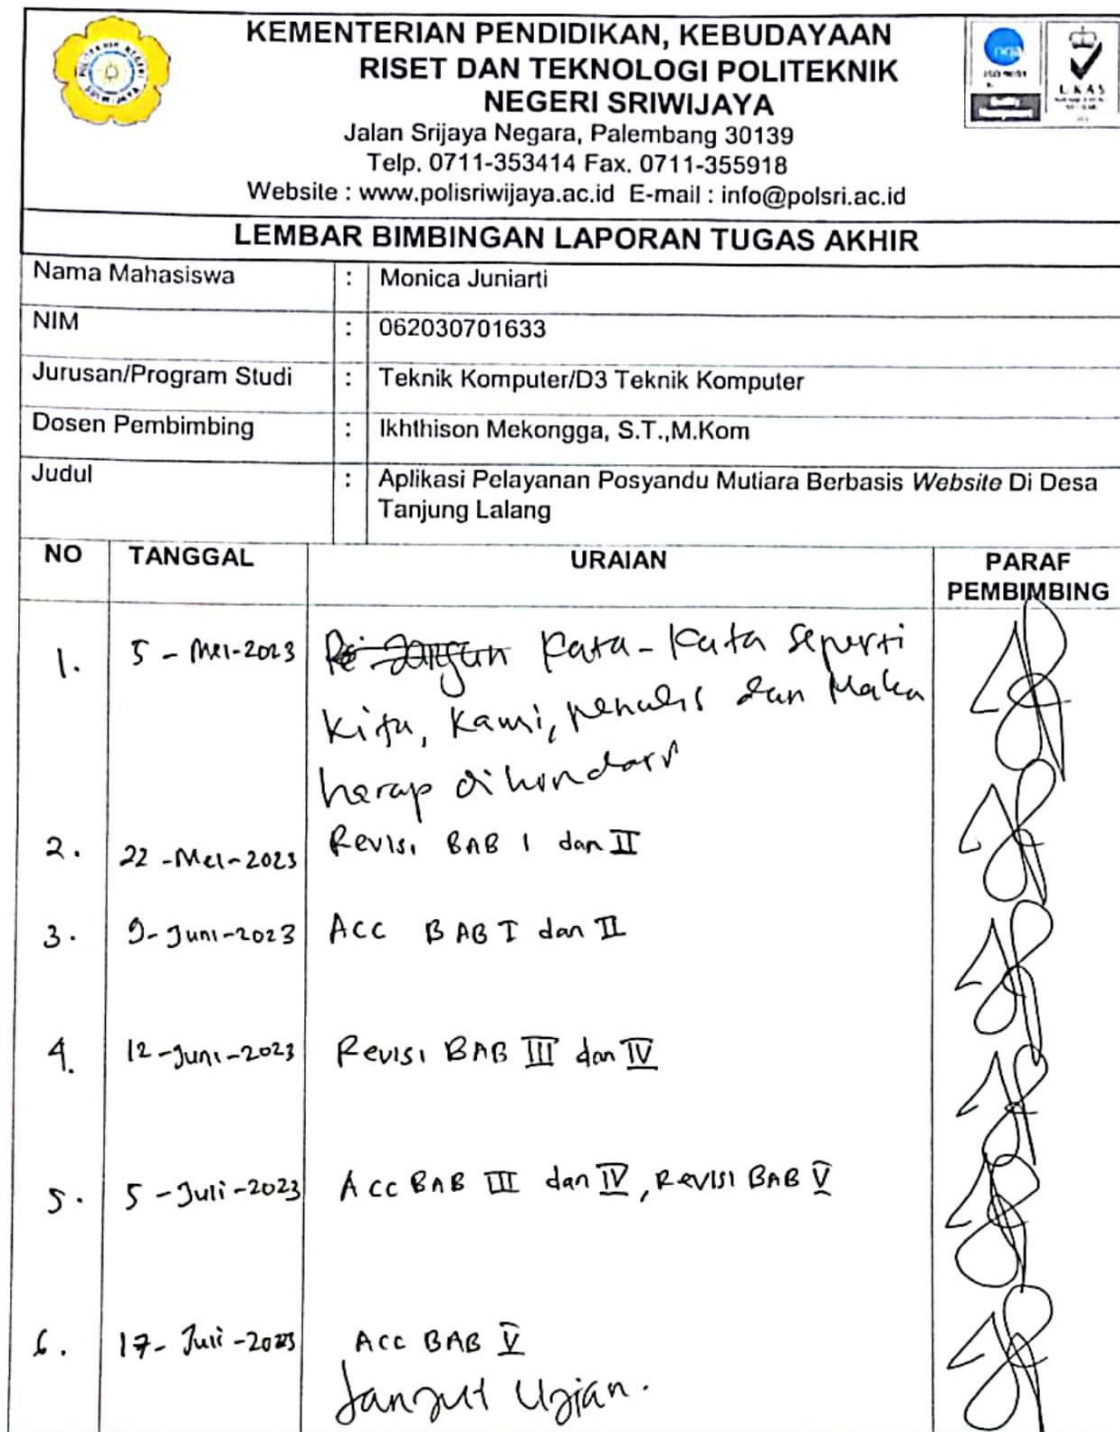 KEMENTERIAN PENDIDIKAN, KEBUDAYAAN
RISET DAN TEKNOLOGI POLITEKNIK
NEGERI SRIWIJAYA
Jalan Srijaya Negara, Palembang 30139
Telp. 0711-353414 Fax. 0711-355918
Website : www.polisriwijaya.ac.id E-mail : info@polsri.ac.id
UKAS
LEMBAR BIMBINGAN LAPORAN TUGAS AKHIR
Nama Mahasiswa : Monica Juniarti
NIM : 062030701633
Jurusan/Program Studi : Teknik Komputer/D3 Teknik Komputer
Dosen Pembimbing : Ikhthison Mekongga, S.T.,M.Kom
Judul : Aplikasi Pelayanan Posyandu Mutiara Berbasis Website Di Desa
Tanjung Lalang
NO TANGGAL URAIAN PARAF
PEMBIMBING
1. 5 - Mei-2023 Kata-Kata seperti
Kita, Kami, penulis dan Maka
harap dihindari
2. 22 -Mei-2023 Revisi BAB I dan II
3. 9-Juni-2023 Acc BAB I dan II
4. 12-Juni-2023 Revisi BAB III dan IV
5. 5 -Juli-2023 Acc BAB III dan IV, Revisi BAB V
6. 17- Juli -2023 Acc BAB V
Lanjut Ujian.